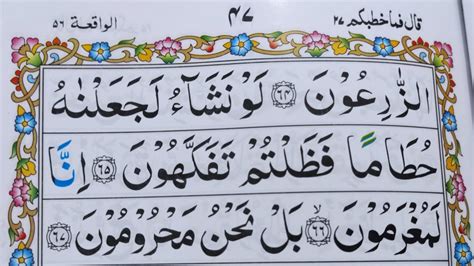 قال فما خطبكم ٢٧ ٤٧ الواقعة ٥٦
الزّٰرِعُوْنَ ﴿٦٤﴾ لَوْ نَشَآءُ لَجَعَلْنٰهُ
حُطَامًا فَظَلْتُمْ تَفَكَّهُوْنَ ﴿٦٥﴾ اِنَّا
لَمُغْرَمُوْنَ ﴿٦٦﴾ۙ بَلْ نَحْنُ مَحْرُوْمُوْنَ ﴿٦٧﴾